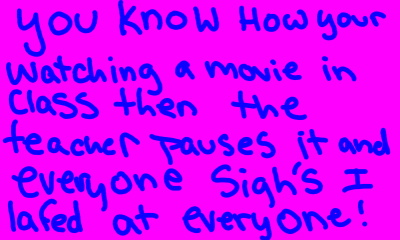 you know How your
watching a movie in
class then the
teacher pauses it and
everyone Sigh's I
lafed at everyone!